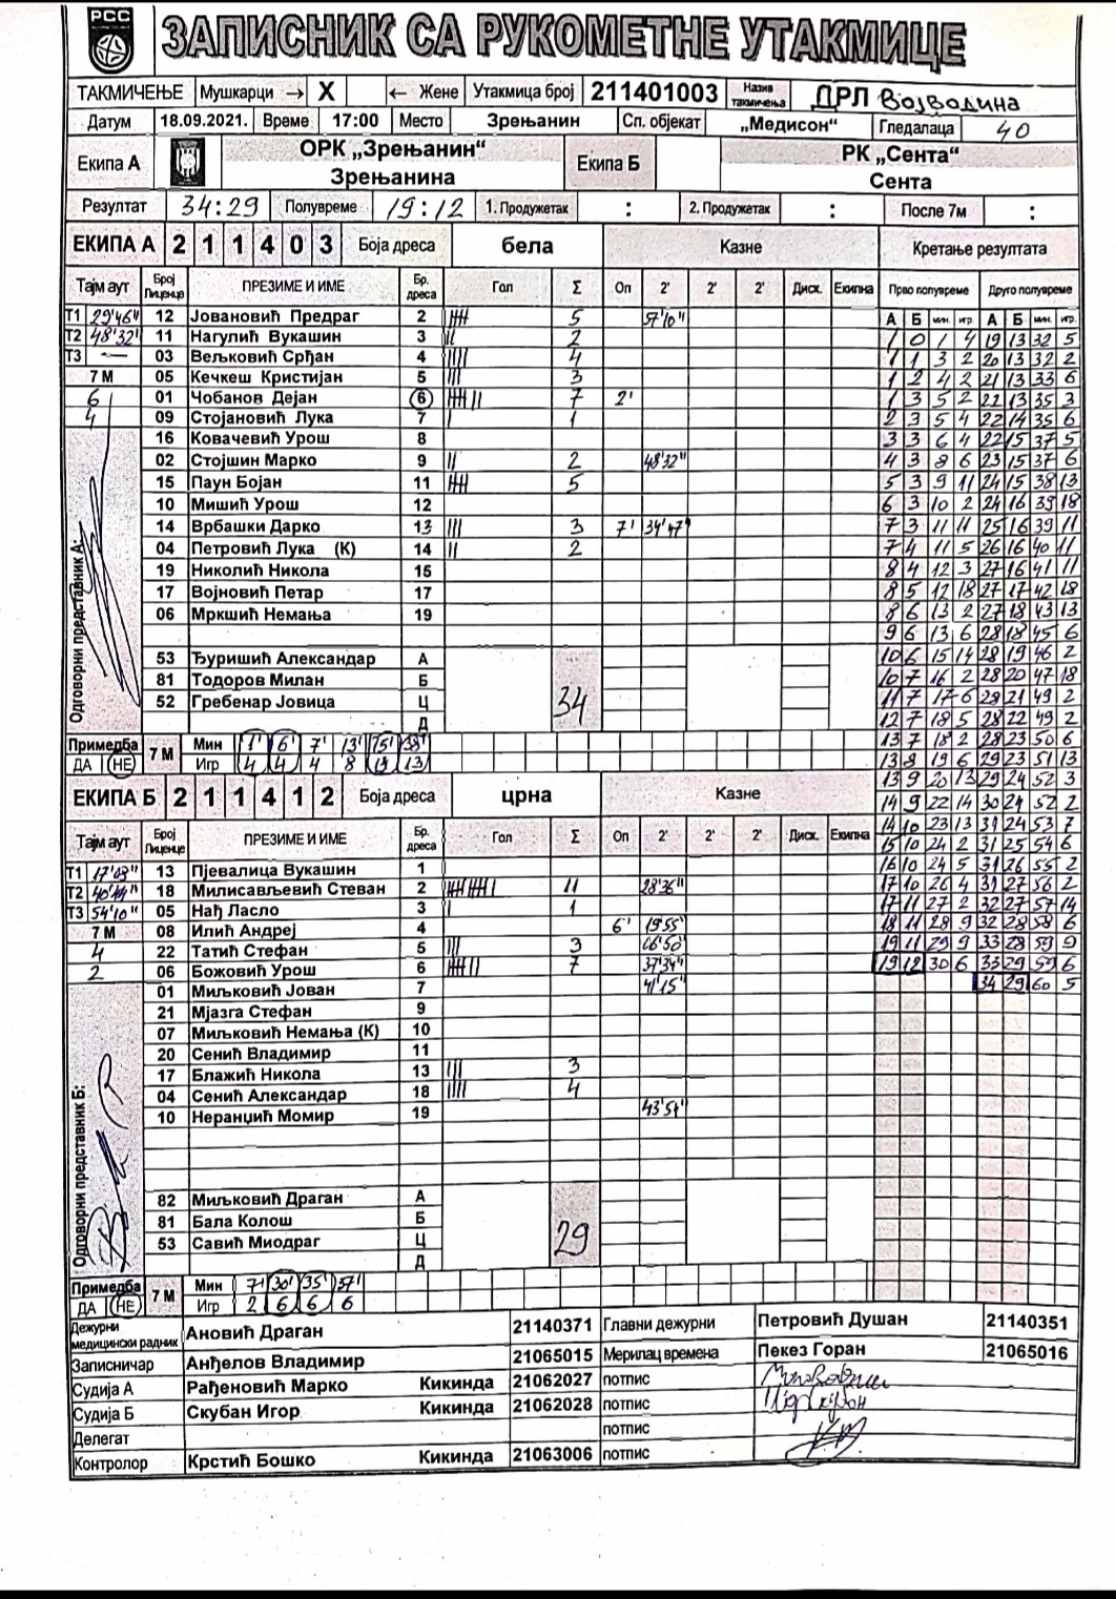 РСС
ЗАПИСНИК СА РУКОМЕТНЕ УТАКМИЦЕ
ТАКМИЧЕЊЕ Мушкарци → X ← Жене Утакмица број 211401003 Назив такмичења ДРЛ Војводина
Датум 18.09.2021. Време 17:00 Место Зрењанин Сп. објекат „Медисон“ Гледалаца 40
Екипа А ОРК „Зрењанин“ Зрењанина Екипа Б РК „Сента“ Сента
Резултат 34:29 Полувреме 19:12 1. Продужетак : 2. Продужетак : После 7м :
ЕКИПА А 2 1 1 4 0 3 Боја дреса бела Казне Кретање резултата
Тајм аут Број Лиценце ПРЕЗИМЕ И ИМЕ Бр. дреса Гол Σ Оп 2' 2' 2' Диск. Екипна Прво полувреме Друго полувреме
А Б мин. игр. А Б мин. игр.
Т1 29'46" 12 Јовановић Предраг 2 5 57'10"
Т2 48'32" 11 Нагулић Вукашин 3 2
Т3 — 03 Вељковић Срђан 4 4
7 М 05 Кечкеш Кристијан 5 3
6 01 Чобанов Дејан 6 7 2'
4 09 Стојановић Лука 7 1
16 Ковачевић Урош 8
02 Стојшин Марко 9 2 48'32"
15 Паун Бојан 11 5
10 Мишић Урош 12
14 Врбашки Дарко 13 3 7' 34'47"
04 Петровић Лука (К) 14 2
19 Николић Никола 15
17 Војновић Петар 17
06 Мркшић Немања 19
53 Ђуришић Александар А
81 Тодоров Милан Б
52 Гребенар Јовица Ц
Д
34
Одговорни представник А:
1 0 1 4 19 13 32 5
1 1 3 2 20 13 32 2
1 2 4 2 21 13 33 6
1 3 5 2 22 13 35 3
2 3 5 4 22 14 35 6
3 3 6 4 22 15 37 5
4 3 8 6 23 15 37 6
5 3 9 11 24 15 38 13
6 3 10 2 24 16 39 18
7 3 11 11 25 16 39 11
7 4 11 5 26 16 40 11
8 4 12 3 27 16 41 11
8 5 12 18 27 17 42 18
8 6 13 2 27 18 43 13
9 6 13 6 28 18 45 6
10 6 15 14 28 19 46 2
10 7 16 2 28 20 47 18
11 7 17 6 28 21 49 2
12 7 18 5 28 22 49 2
13 7 18 2 28 23 50 6
13 8 19 6 29 23 51 13
13 9 20 13 29 24 52 3
14 9 22 14 30 24 52 2
14 10 23 13 31 24 53 7
15 10 24 2 31 25 54 6
16 10 24 5 31 26 55 2
17 10 26 4 31 27 56 2
17 11 27 2 32 27 57 14
18 11 28 9 32 28 58 6
19 11 29 9 33 28 59 9
19 12 30 6 33 29 59 6
34 29 60 5
Примедба 7 М Мин 1' 6' 7' 13' 15' 38'
ДА НЕ Игр 4 4 4 8 13
ЕКИПА Б 2 1 1 4 1 2 Боја дреса црна Казне
Тајм аут Број Лиценце ПРЕЗИМЕ И ИМЕ Бр. дреса Гол Σ Оп 2' 2' 2' Диск. Екипна
Т1 17'03" 13 Пјевалица Вукашин 1
Т2 40'44" 18 Милисављевић Стеван 2 11 28'36"
Т3 54'10" 05 Нађ Ласло 3 1
7 М 08 Илић Андреј 4 6' 19'55"
4 22 Татић Стефан 5 3 06'50"
2 06 Божовић Урош 6 7 37'34"
01 Миљковић Јован 7 41'15"
21 Мјазга Стефан 9
07 Миљковић Немања (К) 10
20 Сенић Владимир 11
17 Блажић Никола 13 3
04 Сенић Александар 18 4
10 Неранџић Момир 19 43'51"
82 Миљковић Драган А
81 Бала Колош Б
53 Савић Миодраг Ц
Д
29
Одговорни представник Б:
Примедба 7 М Мин 7' 30' 35' 57'
ДА НЕ Игр 2 6 6 6
Дежурни медицински радник Ановић Драган 21140371 Главни дежурни Петровић Душан 21140351
Записничар Анђелов Владимир 21065015 Мерилац времена Пекез Горан 21065016
Судија А Рађеновић Марко Кикинда 21062027 потпис
Судија Б Скубан Игор Кикинда 21062028 потпис
Делегат потпис
Контролор Крстић Бошко Кикинда 21063006 потпис